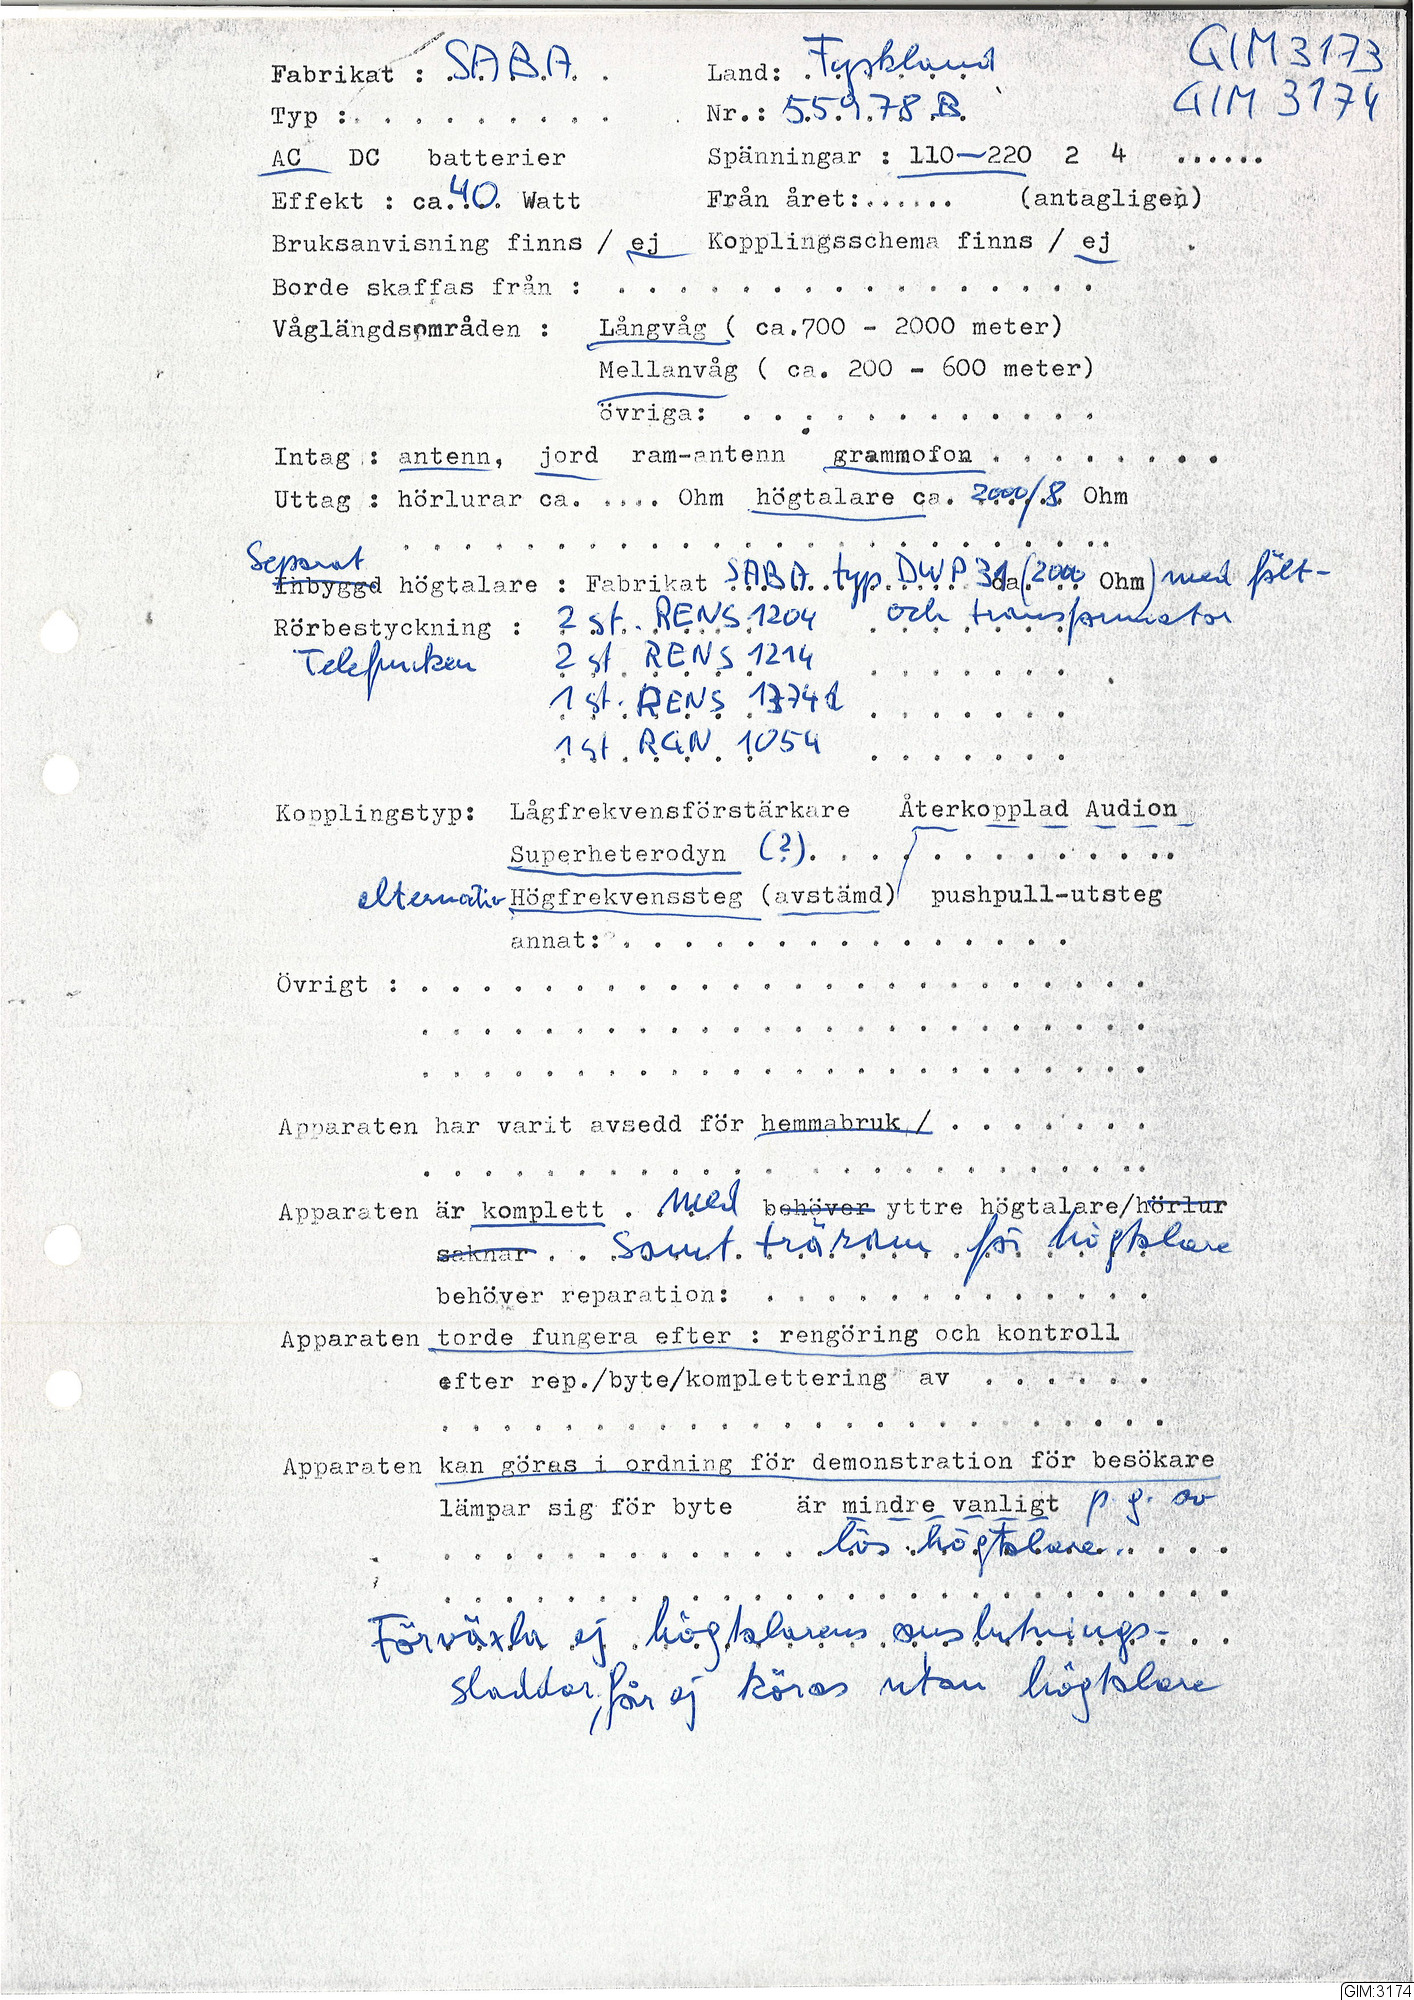 Fabrikat : SABA Land: Tyskland GIM 3173
Typ : . . . . . . . . . Nr.: 55978 B GIM 3174
AC DC batterier Spänningar : 110—220 2 4 ......
Effekt : ca. 40 Watt Från året:...... (antagligen)
Bruksanvisning finns / ej Kopplingsschema finns / ej
Borde skaffas från : . . . . . . . . . . . . . . . .
Våglängdsområden : Långvåg ( ca.700 - 2000 meter)
Mellanvåg ( ca. 200 - 600 meter)
övriga: . . . . . . . . . . . .
Intag : antenn, jord ram-antenn grammofon . . . . . . . .
Uttag : hörlurar ca. .... Ohm högtalare ca. 2000/8 Ohm
. . . . . . . . . . . . . . . . . . . . . . . .
Separat
Inbyggd högtalare : Fabrikat SABA typ DWP 31 ca (2000 Ohm) med fält-
Rörbestyckning : 2 st. RENS 1204 och transformator
Telefunken 2 st RENS 1214
1 st. RENS 1374d
1 st RGN 1054
Kopplingstyp: Lågfrekvensförstärkare Återkopplad Audion
Superheterodyn (?). . . . . . . . . . . .
alternativ Högfrekvenssteg (avstämd) pushpull-utsteg
annat: . . . . . . . . . . . . . . .
Övrigt : . . . . . . . . . . . . . . . . . . . . . . . .
. . . . . . . . . . . . . . . . . . . . . . . .
. . . . . . . . . . . . . . . . . . . . . . . .
Apparaten har varit avsedd för hemmabruk / . . . . . . .
. . . . . . . . . . . . . . . . . . . . . . . .
Apparaten är komplett . med behöver yttre högtalare/hörlur
saknar . . samt träram för högtalare
behöver reparation: . . . . . . . . . . . . .
Apparaten torde fungera efter : rengöring och kontroll
efter rep./byte/komplettering av . . . . . .
. . . . . . . . . . . . . . . . . . . . . . . .
Apparaten kan göras i ordning för demonstration för besökare
lämpar sig för byte är mindre vanligt p. g. av
. . . . . . . . . . . . . lös högtalare . . . .
. . . . . . . . . . . . . . . . . . . . . . . . . .
Förväxla ej högtalarens anslutnings-
sladdar, får ej köras utan högtalare
GIM:3174